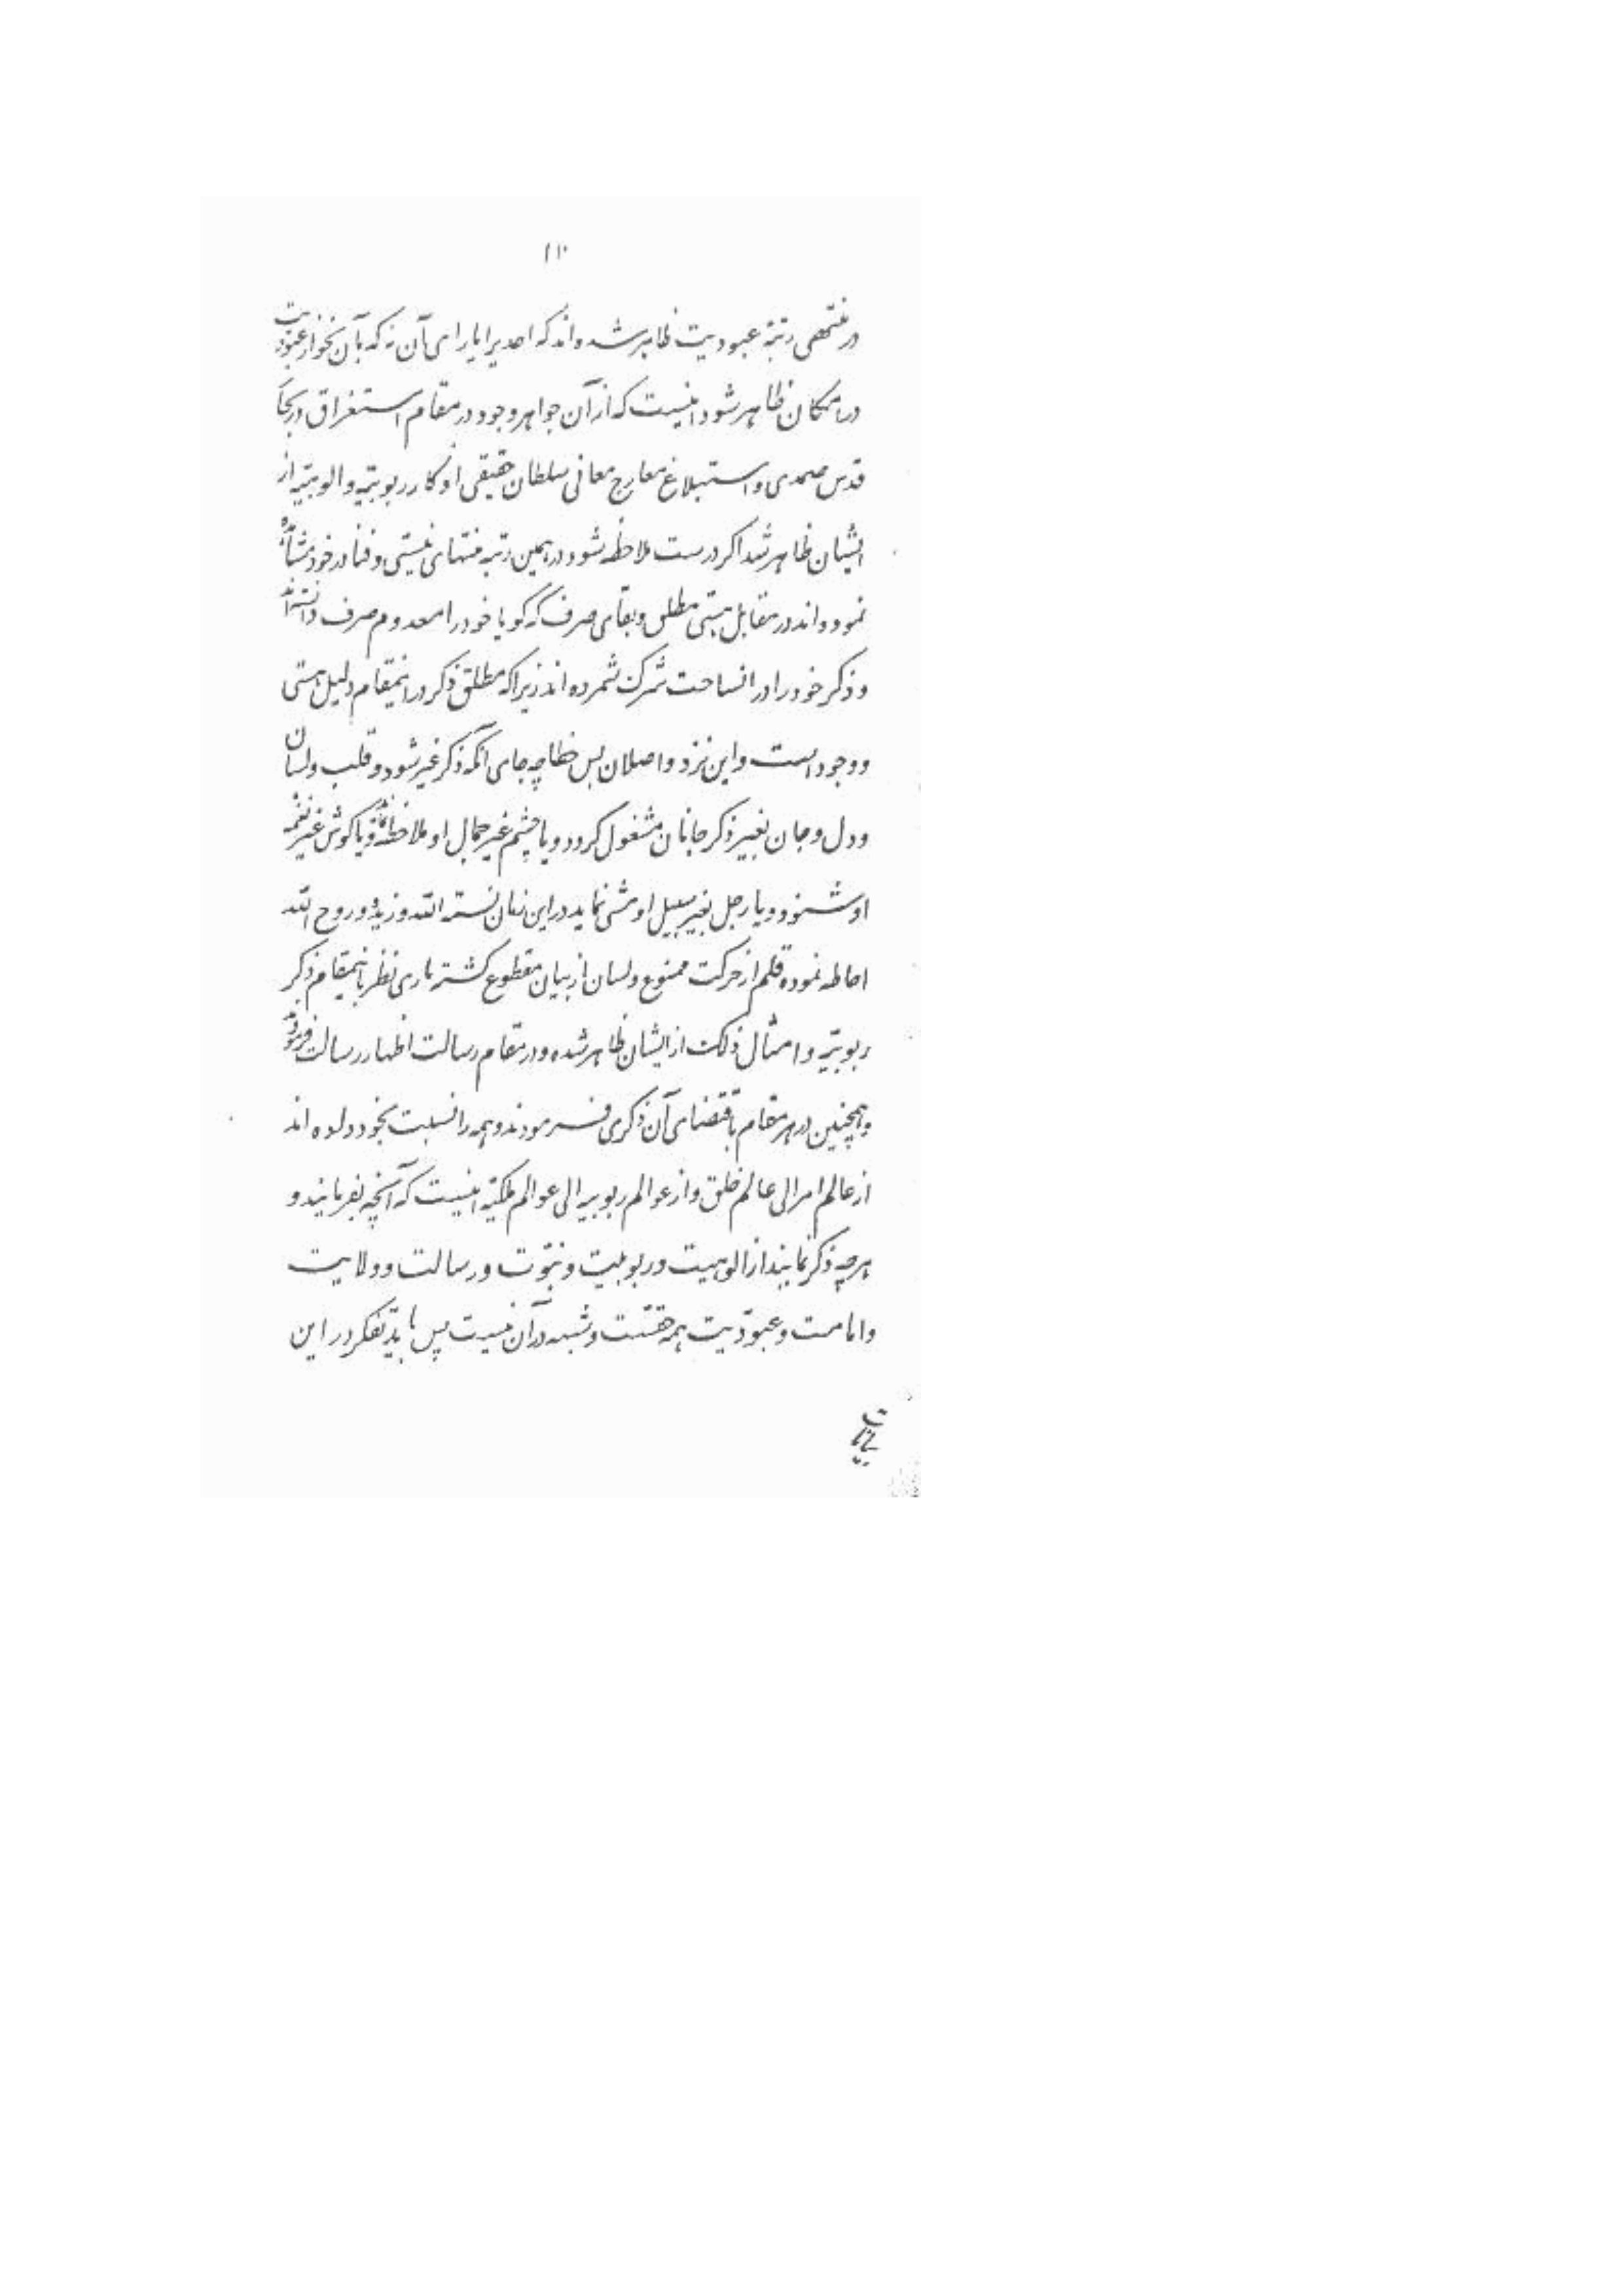 ۱۱۰
در منتهی رتبه عبودیت ظاهر شده‌اند که احدیرا یارای آن نه که بآن نحو از عبودیت
در امکان ظاهر شود اینست که از آن جواهر وجود در مقام استغراق در بحار
قدس صمدی و استبلاغ معارج معانی سلطان حقیقی اذکار ربوبیّه و الوهیّه از
ایشان ظاهر شد اگر درست ملاحظه شود در همین رتبه منتهای نیستی و فنا در خود مشاهده
نموده‌اند در مقابل هستی مطلق و بقای صرف که گویا خود را معدوم صرف دانسته‌اند
و ذکر خود را در انساحت شرک شمرده‌اند زیرا که مطلق ذکر در اینمقام دلیل هستی
و وجود است و این نزد واصلان بس خطا چه جای آنکه ذکر غیر شود و قلب و لسان
و دل و جان بغیر ذکر جانان مشغول گردد و یا چشم غیر جمال او ملاحظه نماید و یا گوش غیر نغمه
او شنود و یا رجل بغیر سبیل او مشی نماید در این زمان نسمة اللّه وزیده و روح اللّه
احاطه نموده قلم از حرکت ممنوع و لسان از بیان مقطوع گشته باری نظر باینمقام ذکر
ربوبیّه و امثال ذلک از ایشان ظاهر شده و در مقام رسالت اظهار رسالت فرمودند
و همچنین در هر مقام باقتضای آن ذکری فرمودند و همه را نسبت بخود داده‌اند
از عالم امر الی عالم خلق و از عوالم ربوبیه الی عوالم ملکیّه اینست که آنچه بفرمایند و
هرچه ذکر نمایند از الوهیت و ربوبیت و نبوّت و رسالت و ولایت
و امامت و عبودّیت همه حقّست و شبهه در آن نیست پس باید تفکر در این